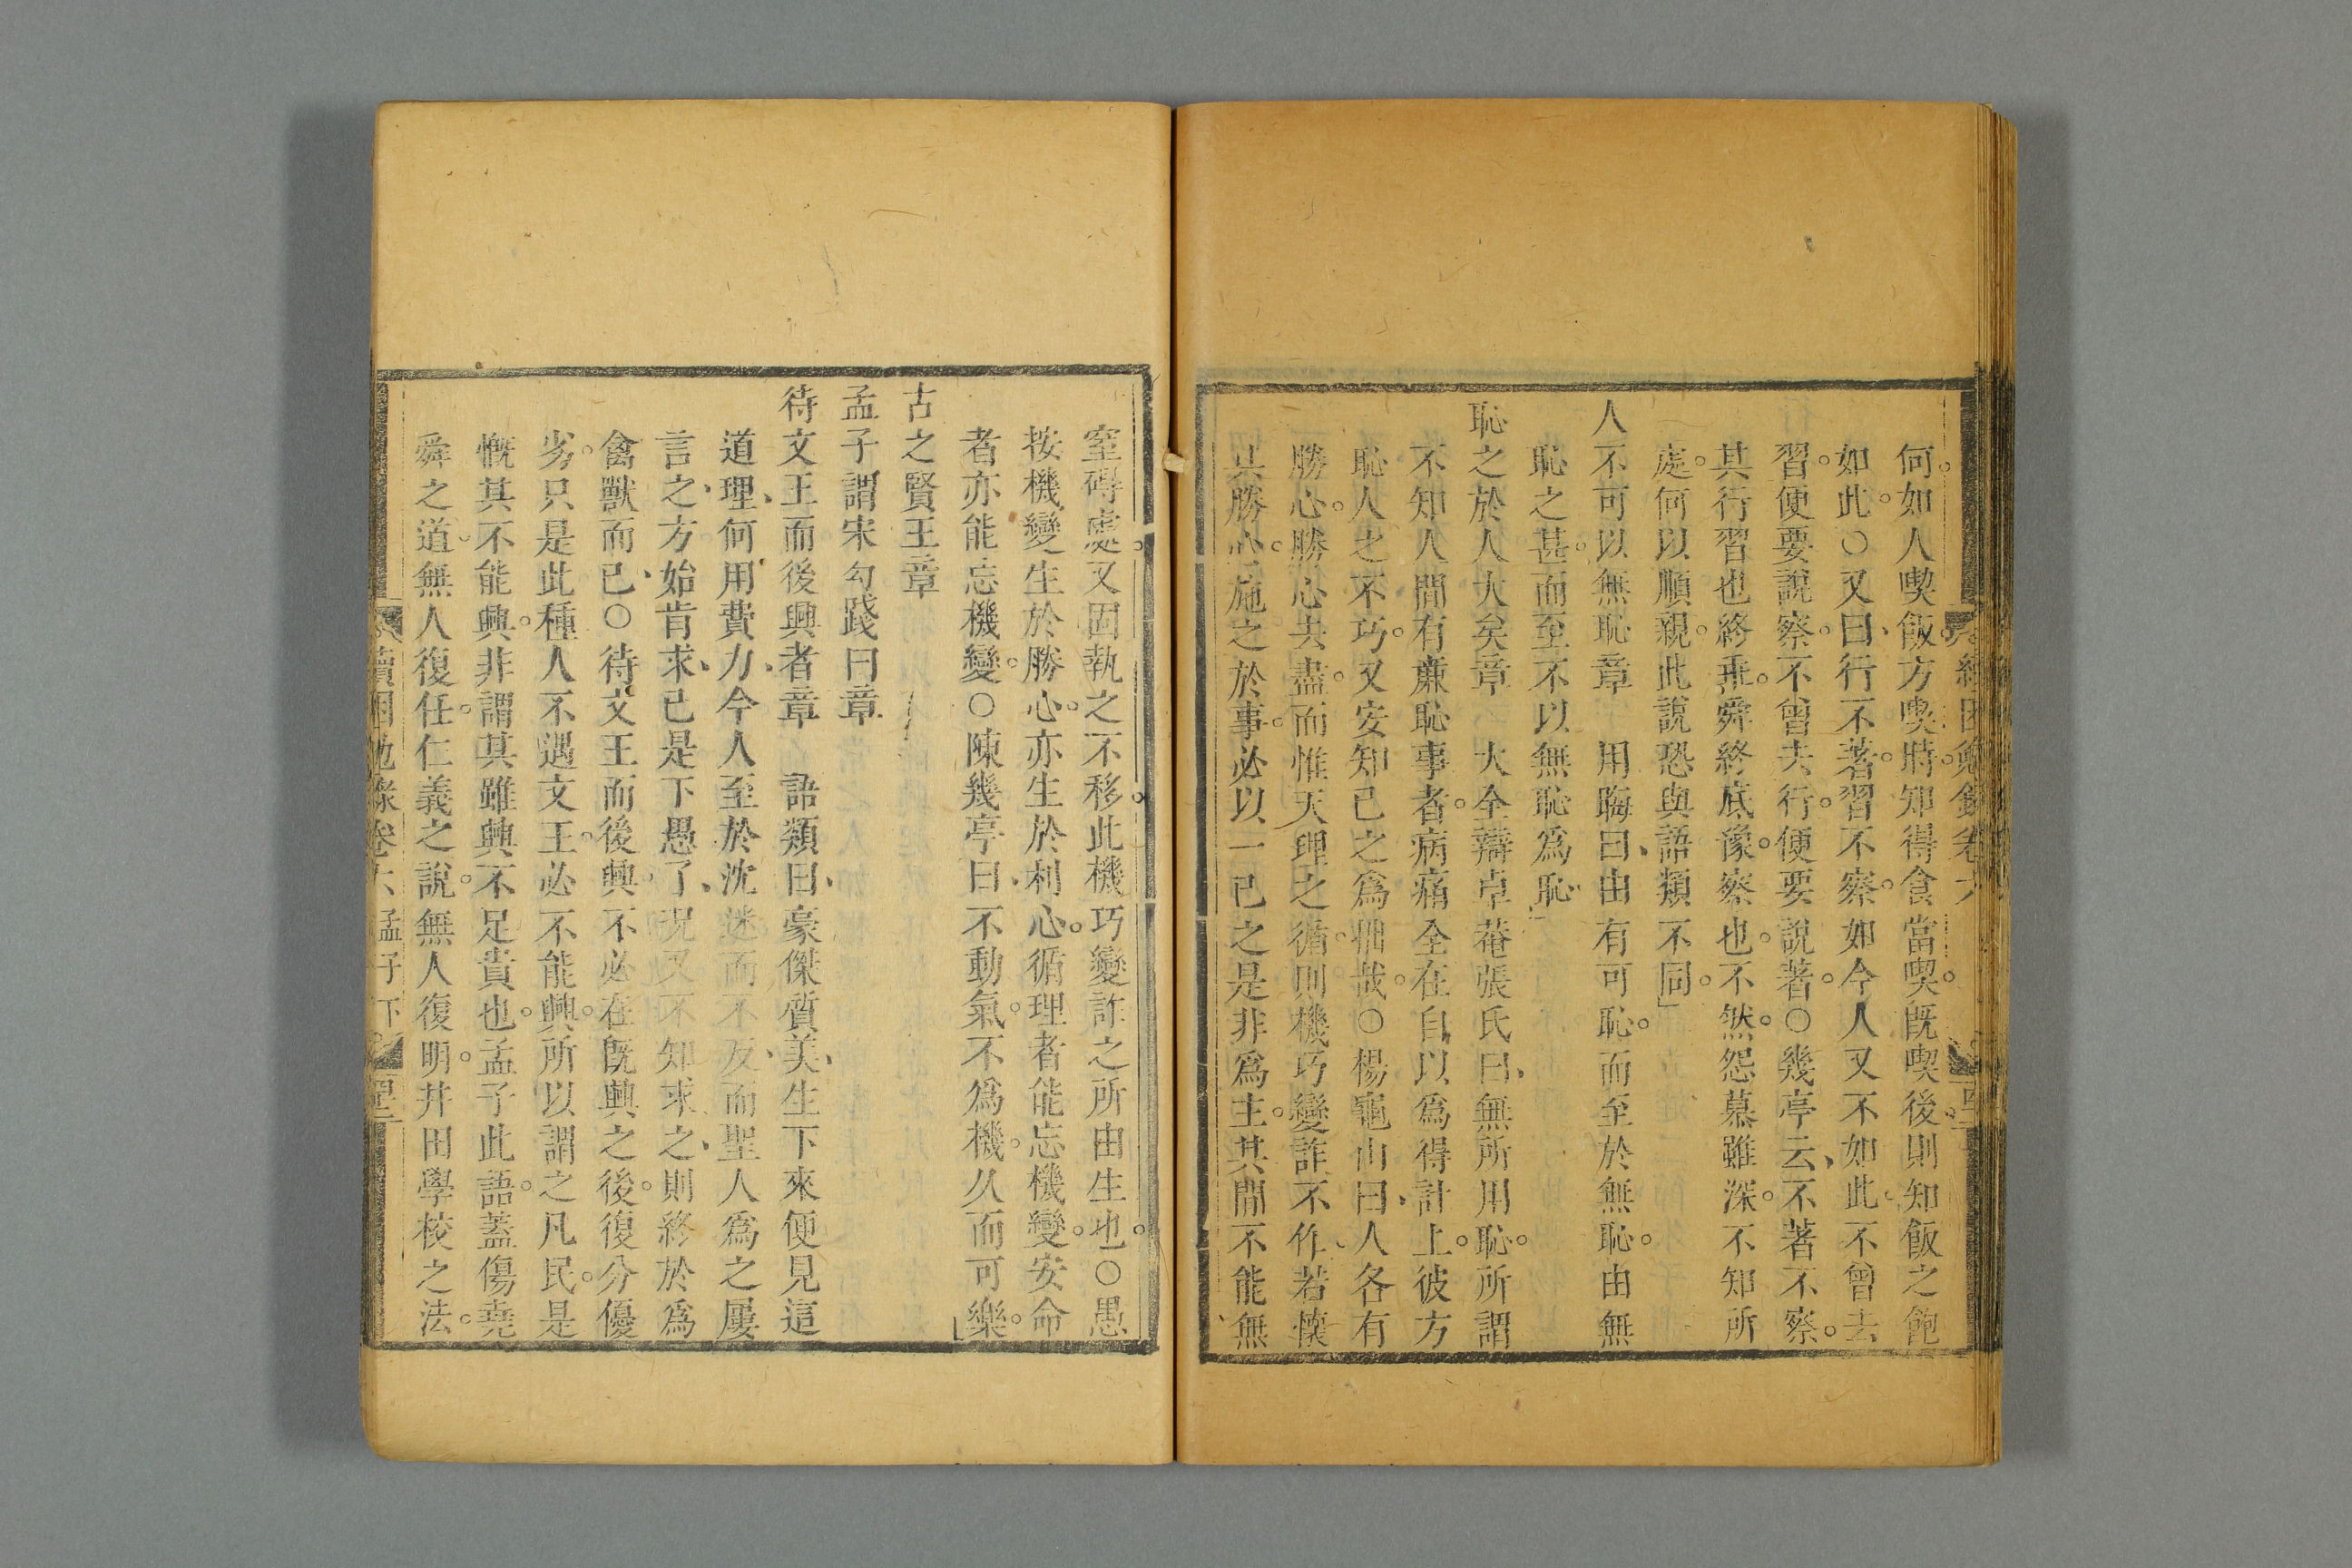 何如人喫飯方喫時知得食當喫既喫後則知飯之飽
如此○又曰行不著習不察如今人又不如此不曾去
習便要說察不曾去行便要說著○幾亭云不著不察
其行習也終垂舜終底豫察也不然怨慕雖深不知所
處何以順親此說恐與語類不同
人不可以無恥章　用晦曰由有可恥而至於無恥由無
恥之甚而至不以無恥爲恥
恥之於人大矣章　大全辯卓菴張氏曰無所用恥所謂
不知人間有廉恥事者病痛全在自以爲得計上彼方
恥人之不巧又安知己之爲拙哉○楊龜山曰人各有
勝心勝心去盡而惟天理之循則機巧變詐不作若懷
其勝心施之於事必以一己之是非爲主其間不能無
窒碍處又固執之不移此機巧變詐之所由生也○愚
按機變生於勝心亦生於利心循理者能忘機變安命
者亦能忘機變○陳幾亭曰不動氣不爲機久而可樂
古之賢王章
孟子謂宋勾踐曰章
待文王而後興者章　語類曰豪傑質美生下來便見這
道理何用費力今人至於沈迷而不反而聖人爲之屢
言之方始肯求已是下愚了況又不知求之則終於爲
禽獸而已○待文王而後興不必在既興之後復分優
劣只是此種人不遇文王必不能興所以謂之凡民是
慨其不能興非謂其雖興不足貴也孟子此語蓋傷堯
舜之道無人復任仁義之說無人復明井田學校之法
讀困勉錄卷六　孟子下